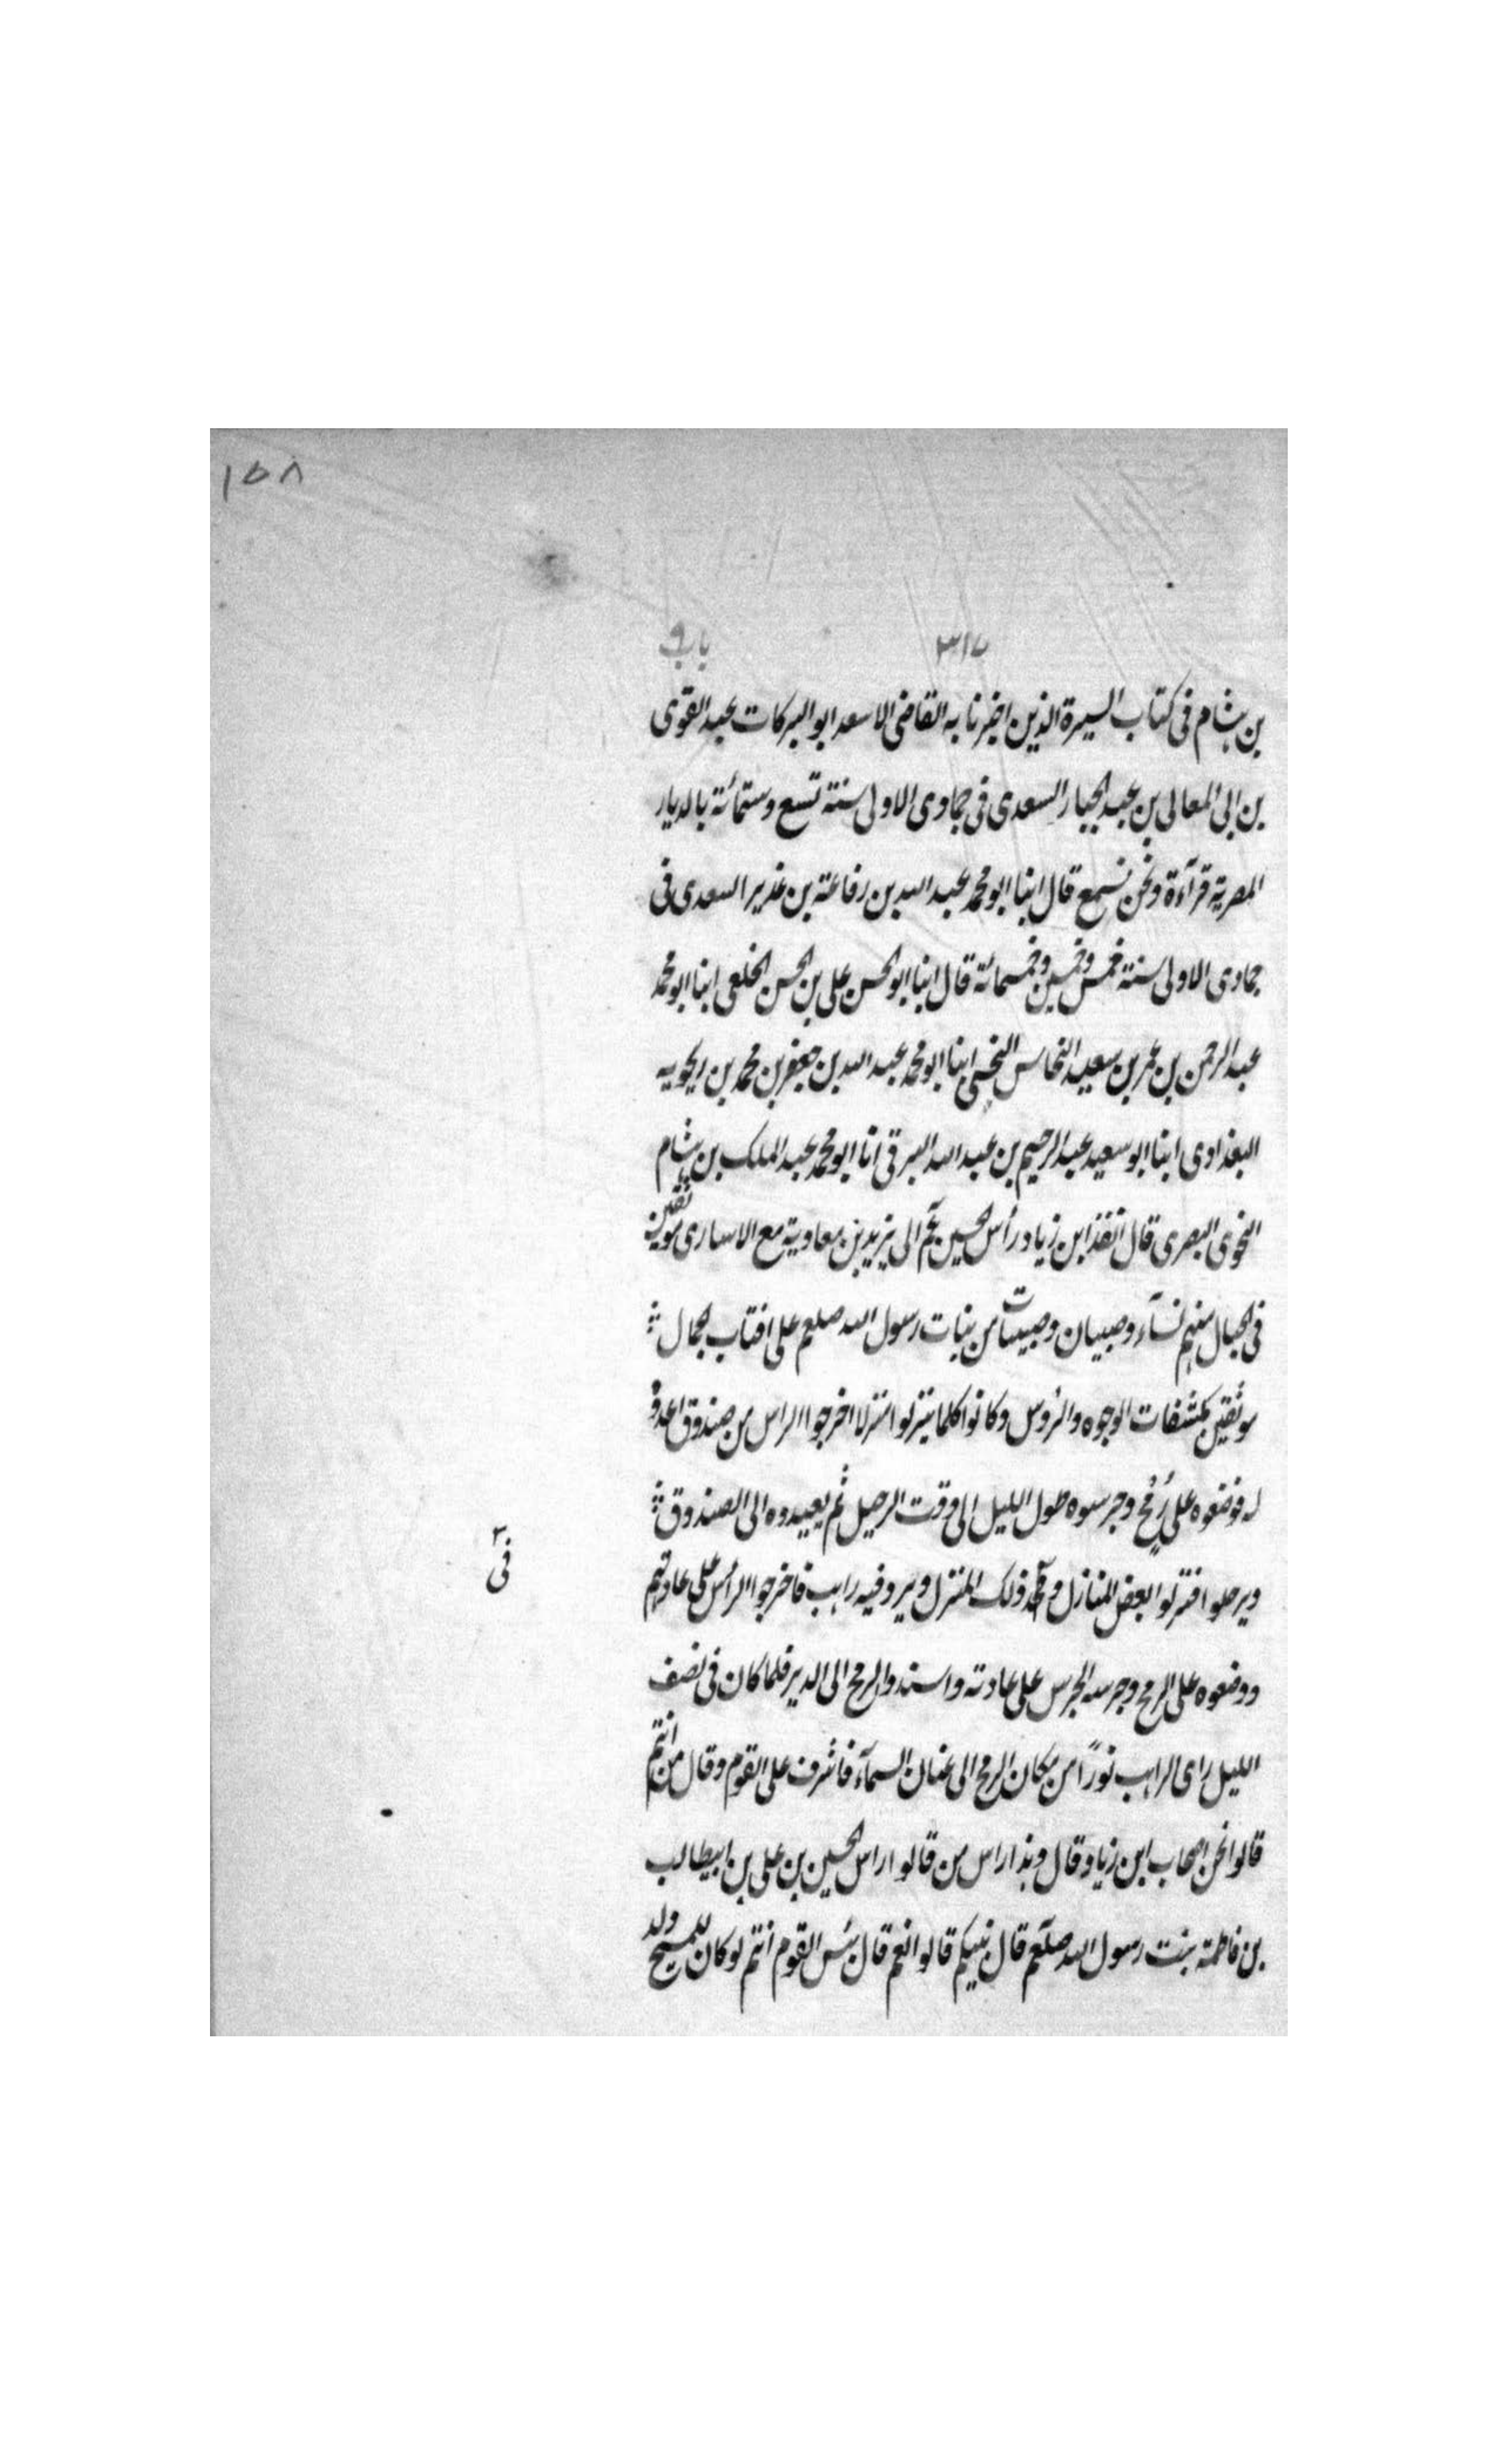 ١٥٨
٣١٧ باب ٩
بن هشام فى كتاب السيرة الذين اخبرنا به القاضى الاسعد ابو البركات عبد القوى
بن ابى المعالى بن عبد الجبار السعدى فى جمادى الاولى سنة تسع وستمائة بالديار
المصرية قرآءة ونحن نسمع قال ابنا ابو محمد عبد الله بن رفاعة بن غدير السعدى فى
جمادى الاولى سنة خمس وخمسين وخمسمائة قال ابنا ابو الحسن على بن الحسن الخلعى ابنا ابو محمد
عبد الرحمن بن عمر بن سعيد النحاس ابنا ابو محمد عبد الله بن جعفر بن محمد بن
البغدادى ابنا ابو سعيد عبد الرحيم بن عبد الله البرقى انا ابو محمد عبد الملك بن هشام
النحوى البصرى قال انفذ ابن زياد رأس الحسين الى يزيد بن معاوية مع الاسارى موثقين
فى الحبال منهم نسآء وصبيان وصبيات من بنات رسول الله صلعم على اقتاب الجمال
موثقين مكشفات الوجوه والرؤس وكانوا كلما ينزلوا منزلا اخرجوا الراس من صندوق اعدوا
له فوضعوه على رُمح وحرسوه طول الليل الى وقت الرحيل ثم يعيدوه الى الصندوق
ويرحلوا فنزلوا بعض المنازل و ذلك المنزل دير وفيه راهب فاخرجوا الرأس على عادتهم
فى
ووضعوه على الرمح وحرسه الحرس على عادته واسندوا الرمح الى الدير فلما كان فى نصف
الليل راى الراهب نورًا من مكان الرمح الى عنان السمآء فاشرف على القوم وقال من انتم
قالوا نحن اصحاب ابن زياد قال وهذا راس من قالوا راس الحسين بن على بن ابيطالب
بن فاطمة بنت رسول الله صلعم قال نبيكم قالوا نعم قال بئس القوم انتم لو كان للمسيح ولد